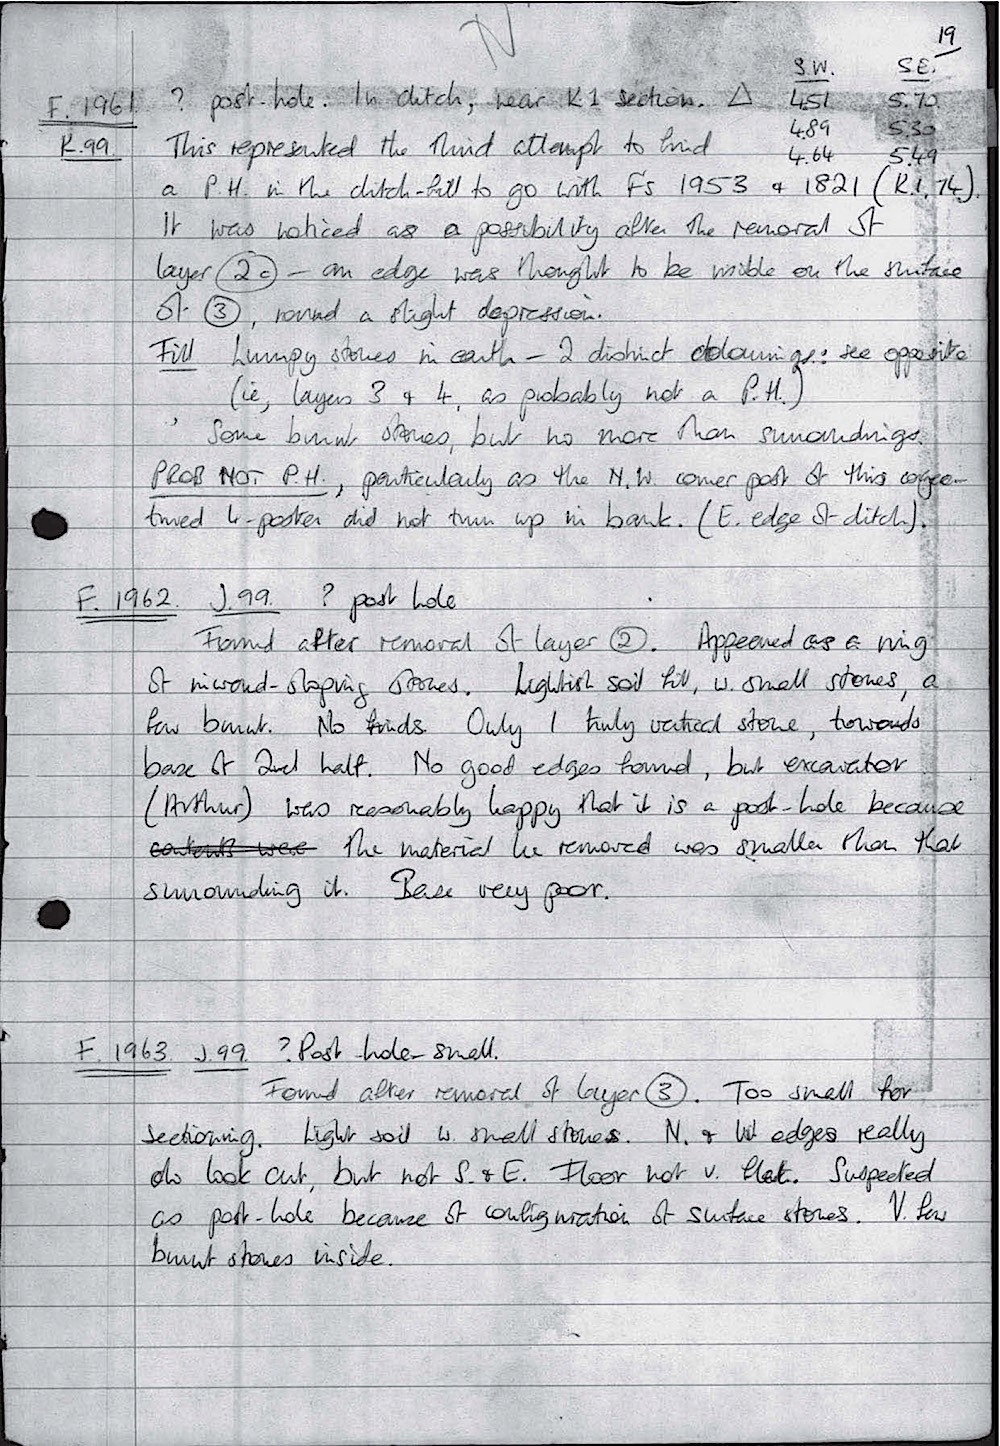 19
S.W. S.E.
F. 1961 ? post-hole. In ditch, near K1 section. △ 4.51 5.70
4.89 5.30
K.99 This represented the third attempt to find 4.64 5.49
a P.H. in the ditch-fill to go with Fs 1953 & 1821 (K.1, 74).
It was noticed as a possibility after the removal of
layer (2c) – an edge was thought to be visible on the surface
of (3), round a slight depression.
Fill Lumpy stones in earth – 2 distinct colourings: see opposite
(ie, layers 3 & 4, as probably not a P.H.)
Some burnt stones, but no more than surroundings.
PROB NOT P.H., particularly as the N.W. corner post of this conjec-
tured 4-poster did not turn up in bank. (E. edge of ditch).
F. 1962. J.99. ? post hole
Found after removal of layer (2). Appeared as a ring
of inward-sloping stones. Lightish soil fill, w. small stones, a
few burnt. No finds. Only 1 truly vertical stone, towards
base of 2nd half. No good edges found, but excavator
(Arthur) was reasonably happy that it is a post-hole because
contents were the material he removed was smaller than that
surrounding it. Base very poor.
F. 1963 J.99. ? Post-hole – small.
Found after removal of layer (3). Too small for
sectioning. Light soil w. small stones. N. & W edges really
do look cut, but not S. & E. Floor not v. flat. Suspected
as post-hole because of configuration of surface stones. V. few
burnt stones inside.